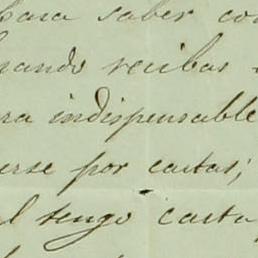 para saber co
uando recibas
ra indispensable
erse por cartas;
l tengo carta